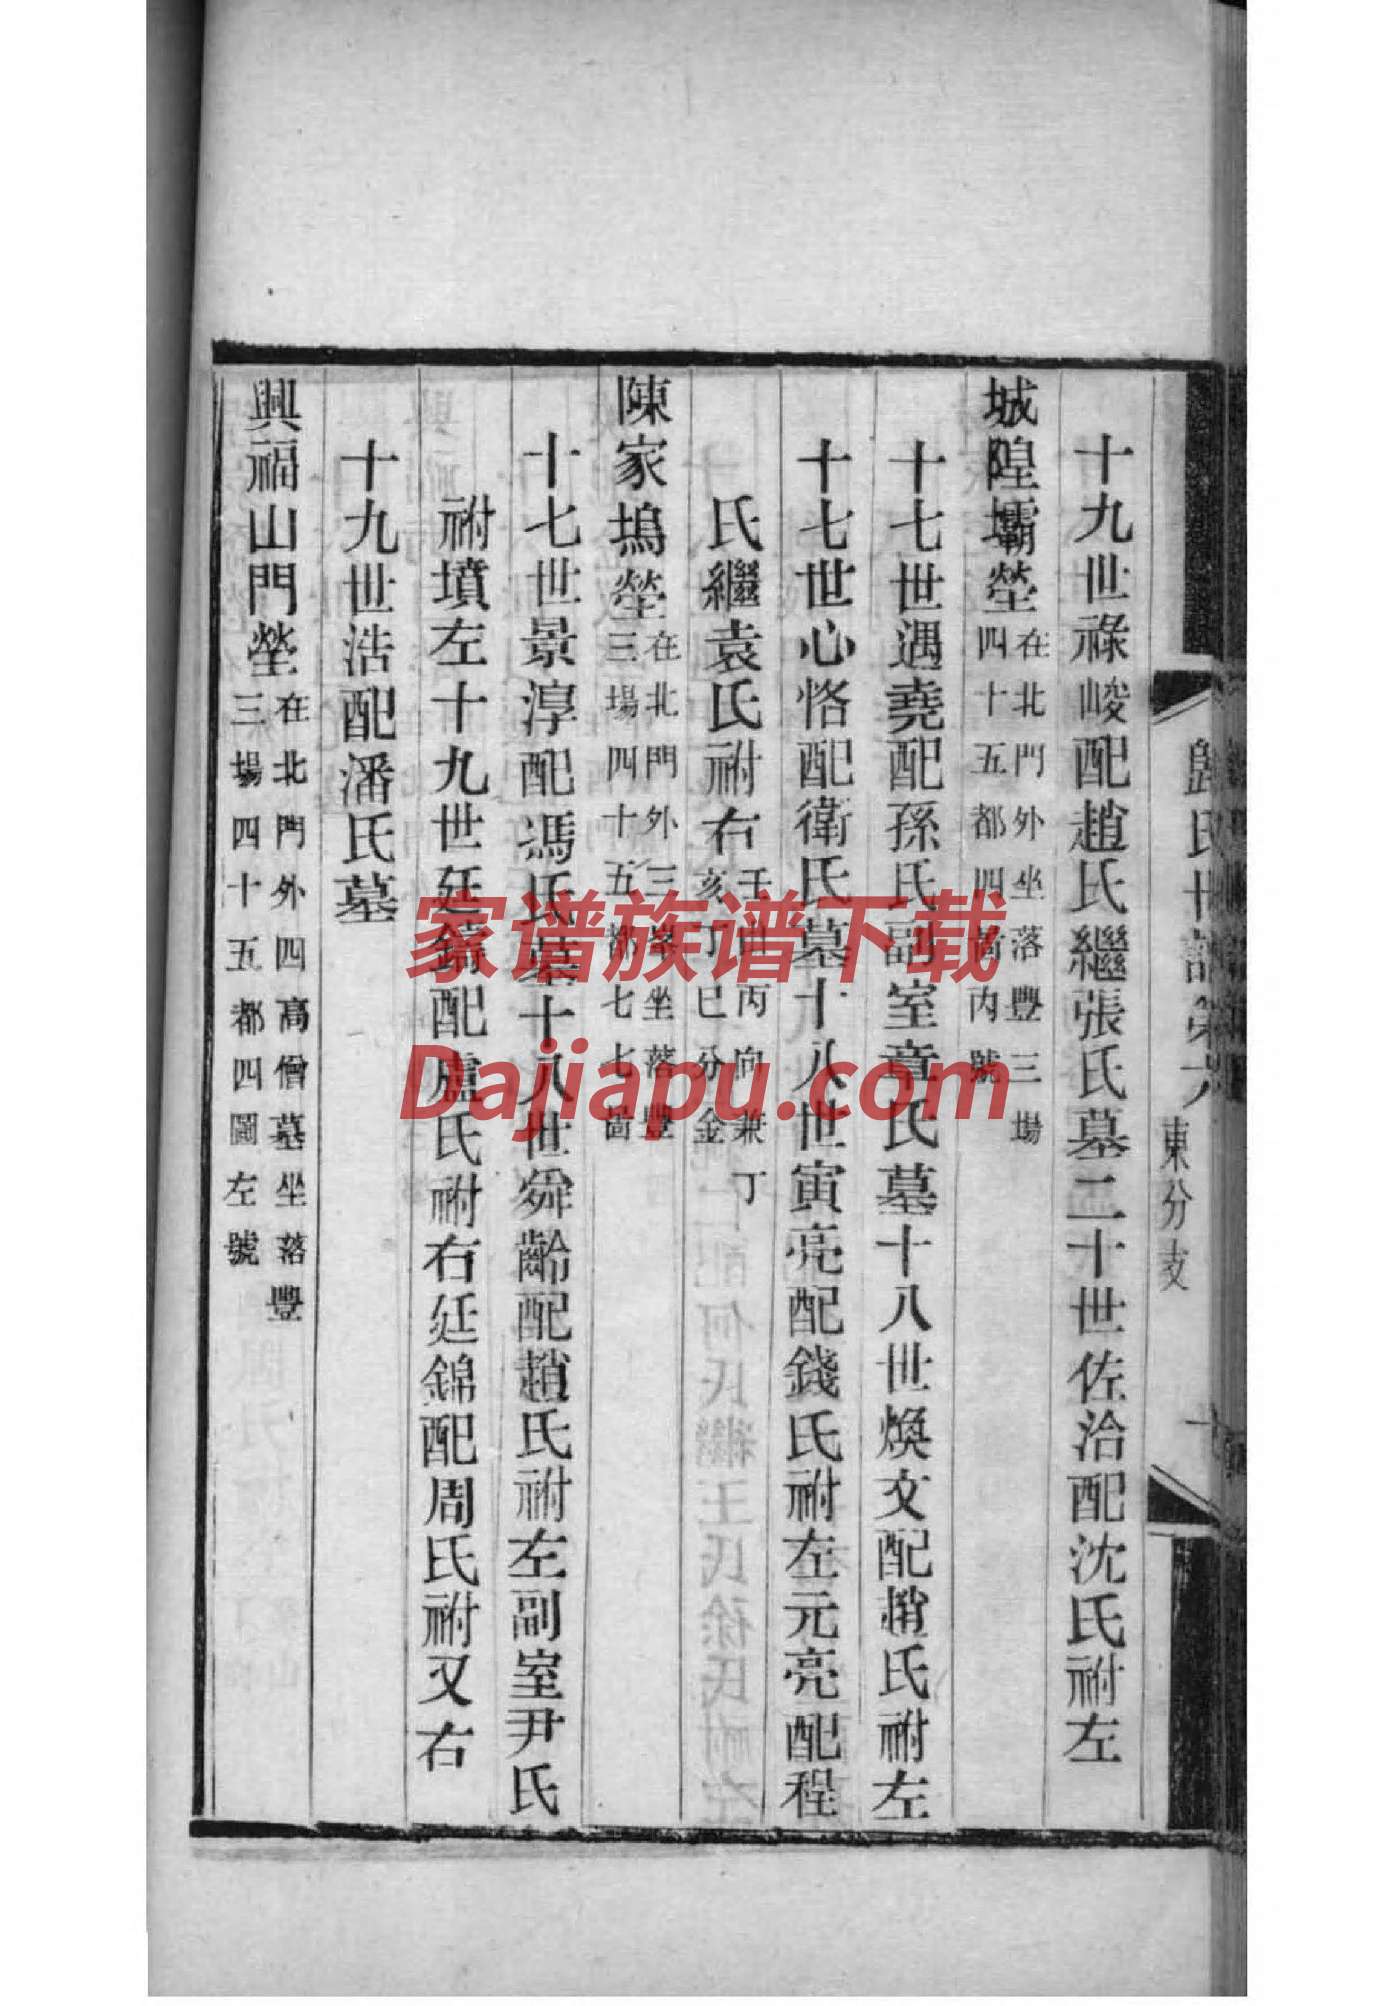 歸氏十記第六 東分支 十
十九世祿峻配趙氏繼張氏墓二十世佐治配沈氏祔左
城隍壩塋在北門外坐落豐三場
四十五都四啚內號
十七世遇堯配孫氏副室章氏墓十八世煥文配趙氏祔左
十七世心恪配衛氏墓十八世寅亮配錢氏祔左元亮配程
氏繼袁氏祔右壬山丙向兼丁
亥丁巳分金
陳家塢塋在北門外三峯坐落豐
三場四十五都七七啚
十七世景淳配馮氏墓十八世舜齡配趙氏祔左副室尹氏
祔墳左十九世廷鑄配盧氏祔右廷錦配周氏祔又右
十九世浩配潘氏墓
興福山門塋在北門外四高僧墓坐落豐
三場四十五都四圖左號
家谱族谱下载
Dajiapu.com